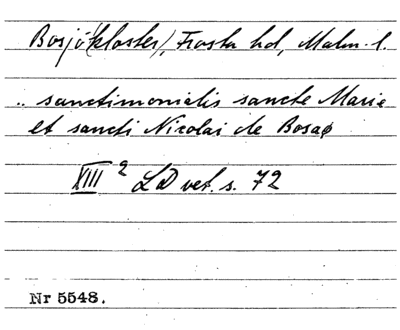 Bosjö(kloster), Frosta hd, Malm. l.
.. sanctimonialis sancte Marie
et sancti Nicolai de Bosaø
XIII 2 LD vet. s. 72
Nr 5548.